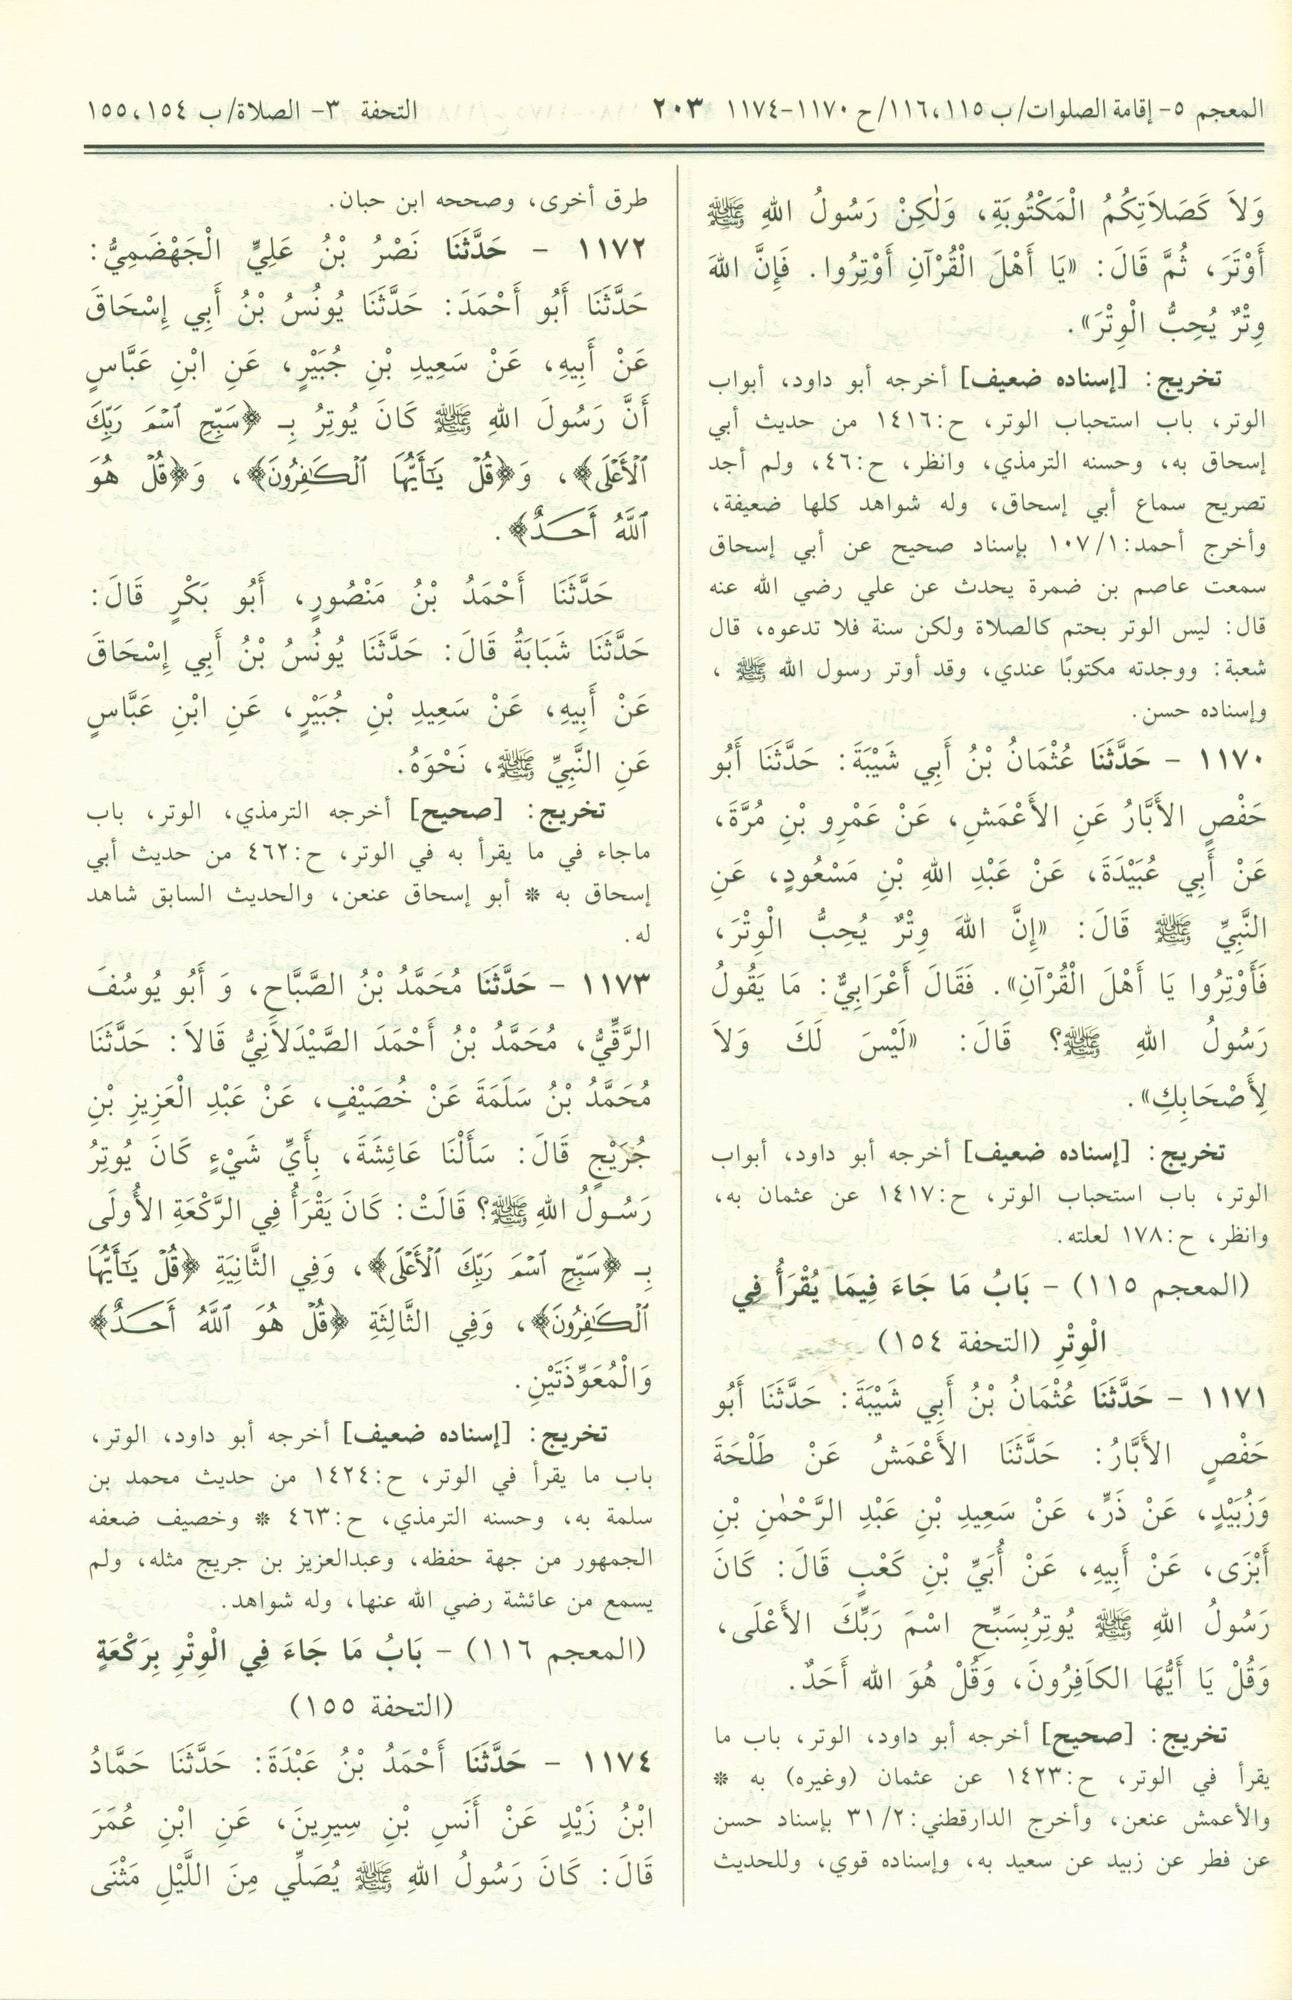 المعجم ٥- إقامة الصلوات/ ب ١١٥، ١١٦/ ح ١١٧٠-١١٧٤ ٢٠٣ التحفة ٣- الصلاة/ ب ١٥٤، ١٥٥
وَلاَ كَصَلاَتِكُمُ الْمَكْتُوبَةِ، وَلٰكِنْ رَسُولُ اللهِ ﷺ
أَوْتَرَ، ثُمَّ قَالَ: «يَا أَهْلَ الْقُرْآنِ أَوْتِرُوا. فَإِنَّ اللهَ
وِتْرٌ يُحِبُّ الْوِتْرَ».
تخريج: [إسناده ضعيف] أخرجه أبو داود، أبواب
الوتر، باب استحباب الوتر، ح:١٤١٦ من حديث أبي
إسحاق به، وحسنه الترمذي، وانظر، ح:٤٦، ولم أجد
تصريح سماع أبي إسحاق، وله شواهد كلها ضعيفة،
وأخرج أحمد:١/ ١٠٧ بإسناد صحيح عن أبي إسحاق
سمعت عاصم بن ضمرة يحدث عن علي رضي الله عنه
قال: ليس الوتر بحتم كالصلاة ولكن سنة فلا تدعوه، قال
شعبة: ووجدته مكتوبًا عندي، وقد أوتر رسول الله ﷺ ،
وإسناده حسن.
١١٧٠ - حَدَّثَنَا عُثْمَانُ بْنُ أَبِي شَيْبَةَ: حَدَّثَنَا أَبُو
حَفْصٍ الأَبَّارُ عَنِ الأَعْمَشِ، عَنْ عَمْرِو بْنِ مُرَّةَ،
عَنْ أَبِي عُبَيْدَةَ، عَنْ عَبْدِ اللهِ بْنِ مَسْعُودٍ، عَنِ
النَّبِيِّ ﷺ قَالَ: «إِنَّ اللهَ وِتْرٌ يُحِبُّ الْوِتْرَ،
فَأَوْتِرُوا يَا أَهْلَ الْقُرْآنِ». فَقَالَ أَعْرَابِيٌّ: مَا يَقُولُ
رَسُولُ اللهِ ﷺ؟ قَالَ: «لَيْسَ لَكَ وَلاَ
لِأَصْحَابِكِ».
تخريج: [إسناده ضعيف] أخرجه أبو داود، أبواب
الوتر، باب استحباب الوتر، ح:١٤١٧ عن عثمان به،
وانظر، ح:١٧٨ لعلته.
(المعجم ١١٥) - بَابُ مَا جَاءَ فِيمَا يُقْرَأُ فِي
الْوِتْرِ (التحفة ١٥٤)
١١٧١ - حَدَّثَنَا عُثْمَانُ بْنُ أَبِي شَيْبَةَ: حَدَّثَنَا أَبُو
حَفْصٍ الأَبَّارُ: حَدَّثَنَا الأَعْمَشُ عَنْ طَلْحَةَ
وَزُبَيْدٍ، عَنْ ذَرٍّ، عَنْ سَعِيدِ بْنِ عَبْدِ الرَّحْمٰنِ بْنِ
أَبْزَى، عَنْ أَبِيهِ، عَنْ أُبَيِّ بْنِ كَعْبٍ قَالَ: كَانَ
رَسُولُ اللهِ ﷺ يُوتِرُبِسَبِّحِ اسْمَ رَبِّكَ الأَعْلَى،
وَقُلْ يَا أَيُّهَا الكَافِرُونَ، وَقُلْ هُوَ الله أَحَدٌ.
تخريج: [صحيح] أخرجه أبو داود، الوتر، باب ما
يقرأ في الوتر، ح:١٤٢٣ عن عثمان (وغيره) به *
والأعمش عنعن، وأخرج الدارقطني:٢/ ٣١ بإسناد حسن
عن فطر عن زبيد عن سعيد به، وإسناده قوي، وللحديث
طرق أخرى، وصححه ابن حبان.
١١٧٢ - حَدَّثَنَا نَصْرُ بْنُ عَلِيٍّ الْجَهْضَمِيُّ:
حَدَّثَنَا أَبُو أَحْمَدَ: حَدَّثَنَا يُونُسُ بْنُ أَبِي إِسْحَاقَ
عَنْ أَبِيهِ، عَنْ سَعِيدِ بْنِ جُبَيْرٍ، عَنِ ابْنِ عَبَّاسٍ
أَنَّ رَسُولَ اللهِ ﷺ كَانَ يُوتِرُ بِـ ﴿سَبِّحِ ٱسْمَ رَبِّكَ
ٱلْأَعْلَى﴾، وَ﴿قُلْ يَٰٓأَيُّهَا ٱلْكَٰفِرُونَ﴾، وَ﴿قُلْ هُوَ
ٱللَّهُ أَحَدٌ﴾.
حَدَّثَنَا أَحْمَدُ بْنُ مَنْصُورٍ، أَبُو بَكْرٍ قَالَ:
حَدَّثَنَا شَبَابَةُ قَالَ: حَدَّثَنَا يُونُسُ بْنُ أَبِي إِسْحَاقَ
عَنْ أَبِيهِ، عَنْ سَعِيدِ بْنِ جُبَيْرٍ، عَنِ ابْنِ عَبَّاسٍ
عَنِ النَّبِيِّ ﷺ، نَحْوَهُ.
تخريج: [صحيح] أخرجه الترمذي، الوتر، باب
ماجاء في ما يقرأ به في الوتر، ح:٤٦٢ من حديث أبي
إسحاق به * أبو إسحاق عنعن، والحديث السابق شاهد
له.
١١٧٣ - حَدَّثَنَا مُحَمَّدُ بْنُ الصَّبَّاحِ، وَ أَبُو يُوسُفَ
الرَّقِّيُّ، مُحَمَّدُ بْنُ أَحْمَدَ الصَّيْدَلاَنِيُّ قَالاَ: حَدَّثَنَا
مُحَمَّدُ بْنُ سَلَمَةَ عَنْ خُصَيْفٍ، عَنْ عَبْدِ الْعَزِيزِ بْنِ
جُرَيْجٍ قَالَ: سَأَلْنَا عَائِشَةَ، بِأَيِّ شَيْءٍ كَانَ يُوتِرُ
رَسُولُ اللهِ ﷺ؟ قَالَتْ: كَانَ يَقْرَأُ فِي الرَّكْعَةِ الأُولَى
بِـ ﴿سَبِّحِ ٱسْمَ رَبِّكَ ٱلْأَعْلَى﴾، وَفِي الثَّانِيَةِ ﴿قُلْ يَٰٓأَيُّهَا
ٱلْكَٰفِرُونَ﴾، وَفِي الثَّالِثَةِ ﴿قُلْ هُوَ ٱللَّهُ أَحَدٌ﴾
وَالْمُعَوِّذَتَيْنِ.
تخريج: [إسناده ضعيف] أخرجه أبو داود، الوتر،
باب ما يقرأ في الوتر، ح:١٤٢٤ من حديث محمد بن
سلمة به، وحسنه الترمذي، ح:٤٦٣ * وخصيف ضعفه
الجمهور من جهة حفظه، وعبدالعزيز بن جريج مثله، ولم
يسمع من عائشة رضي الله عنها، وله شواهد.
(المعجم ١١٦) - بَابُ مَا جَاءَ فِي الْوِتْرِ بِرَكْعَةٍ
(التحفة ١٥٥)
١١٧٤ - حَدَّثَنَا أَحْمَدُ بْنُ عَبْدَةَ: حَدَّثَنَا حَمَّادُ
ابْنُ زَيْدٍ عَنْ أَنَسِ بْنِ سِيرِينَ، عَنِ ابْنِ عُمَرَ
قَالَ: كَانَ رَسُولُ اللهِ ﷺ يُصَلِّي مِنَ اللَّيْلِ مَثْنَى